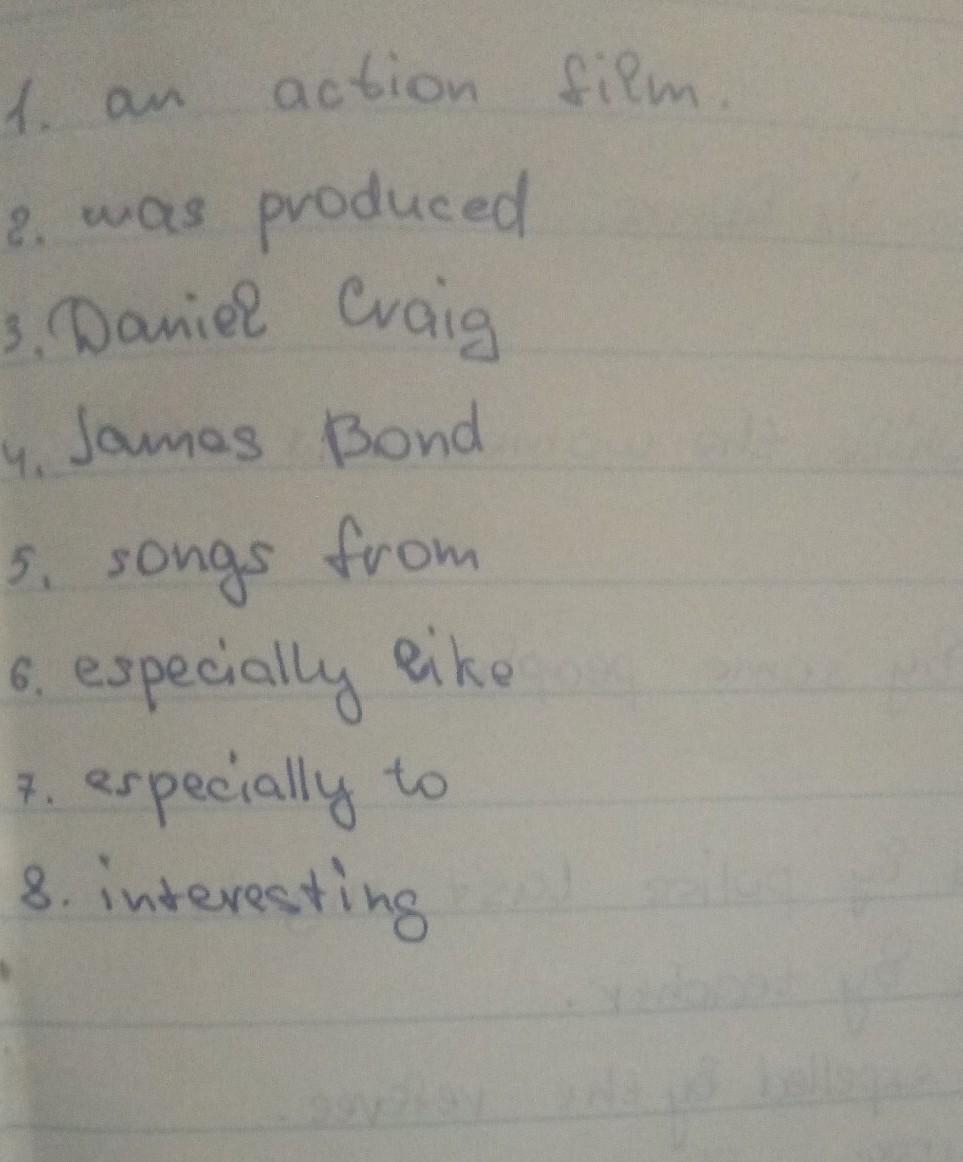 1. an action film.
2. was produced
3. Daniel Craig
4. James Bond
5. songs from
6. especially like
7. especially to
8. interesting